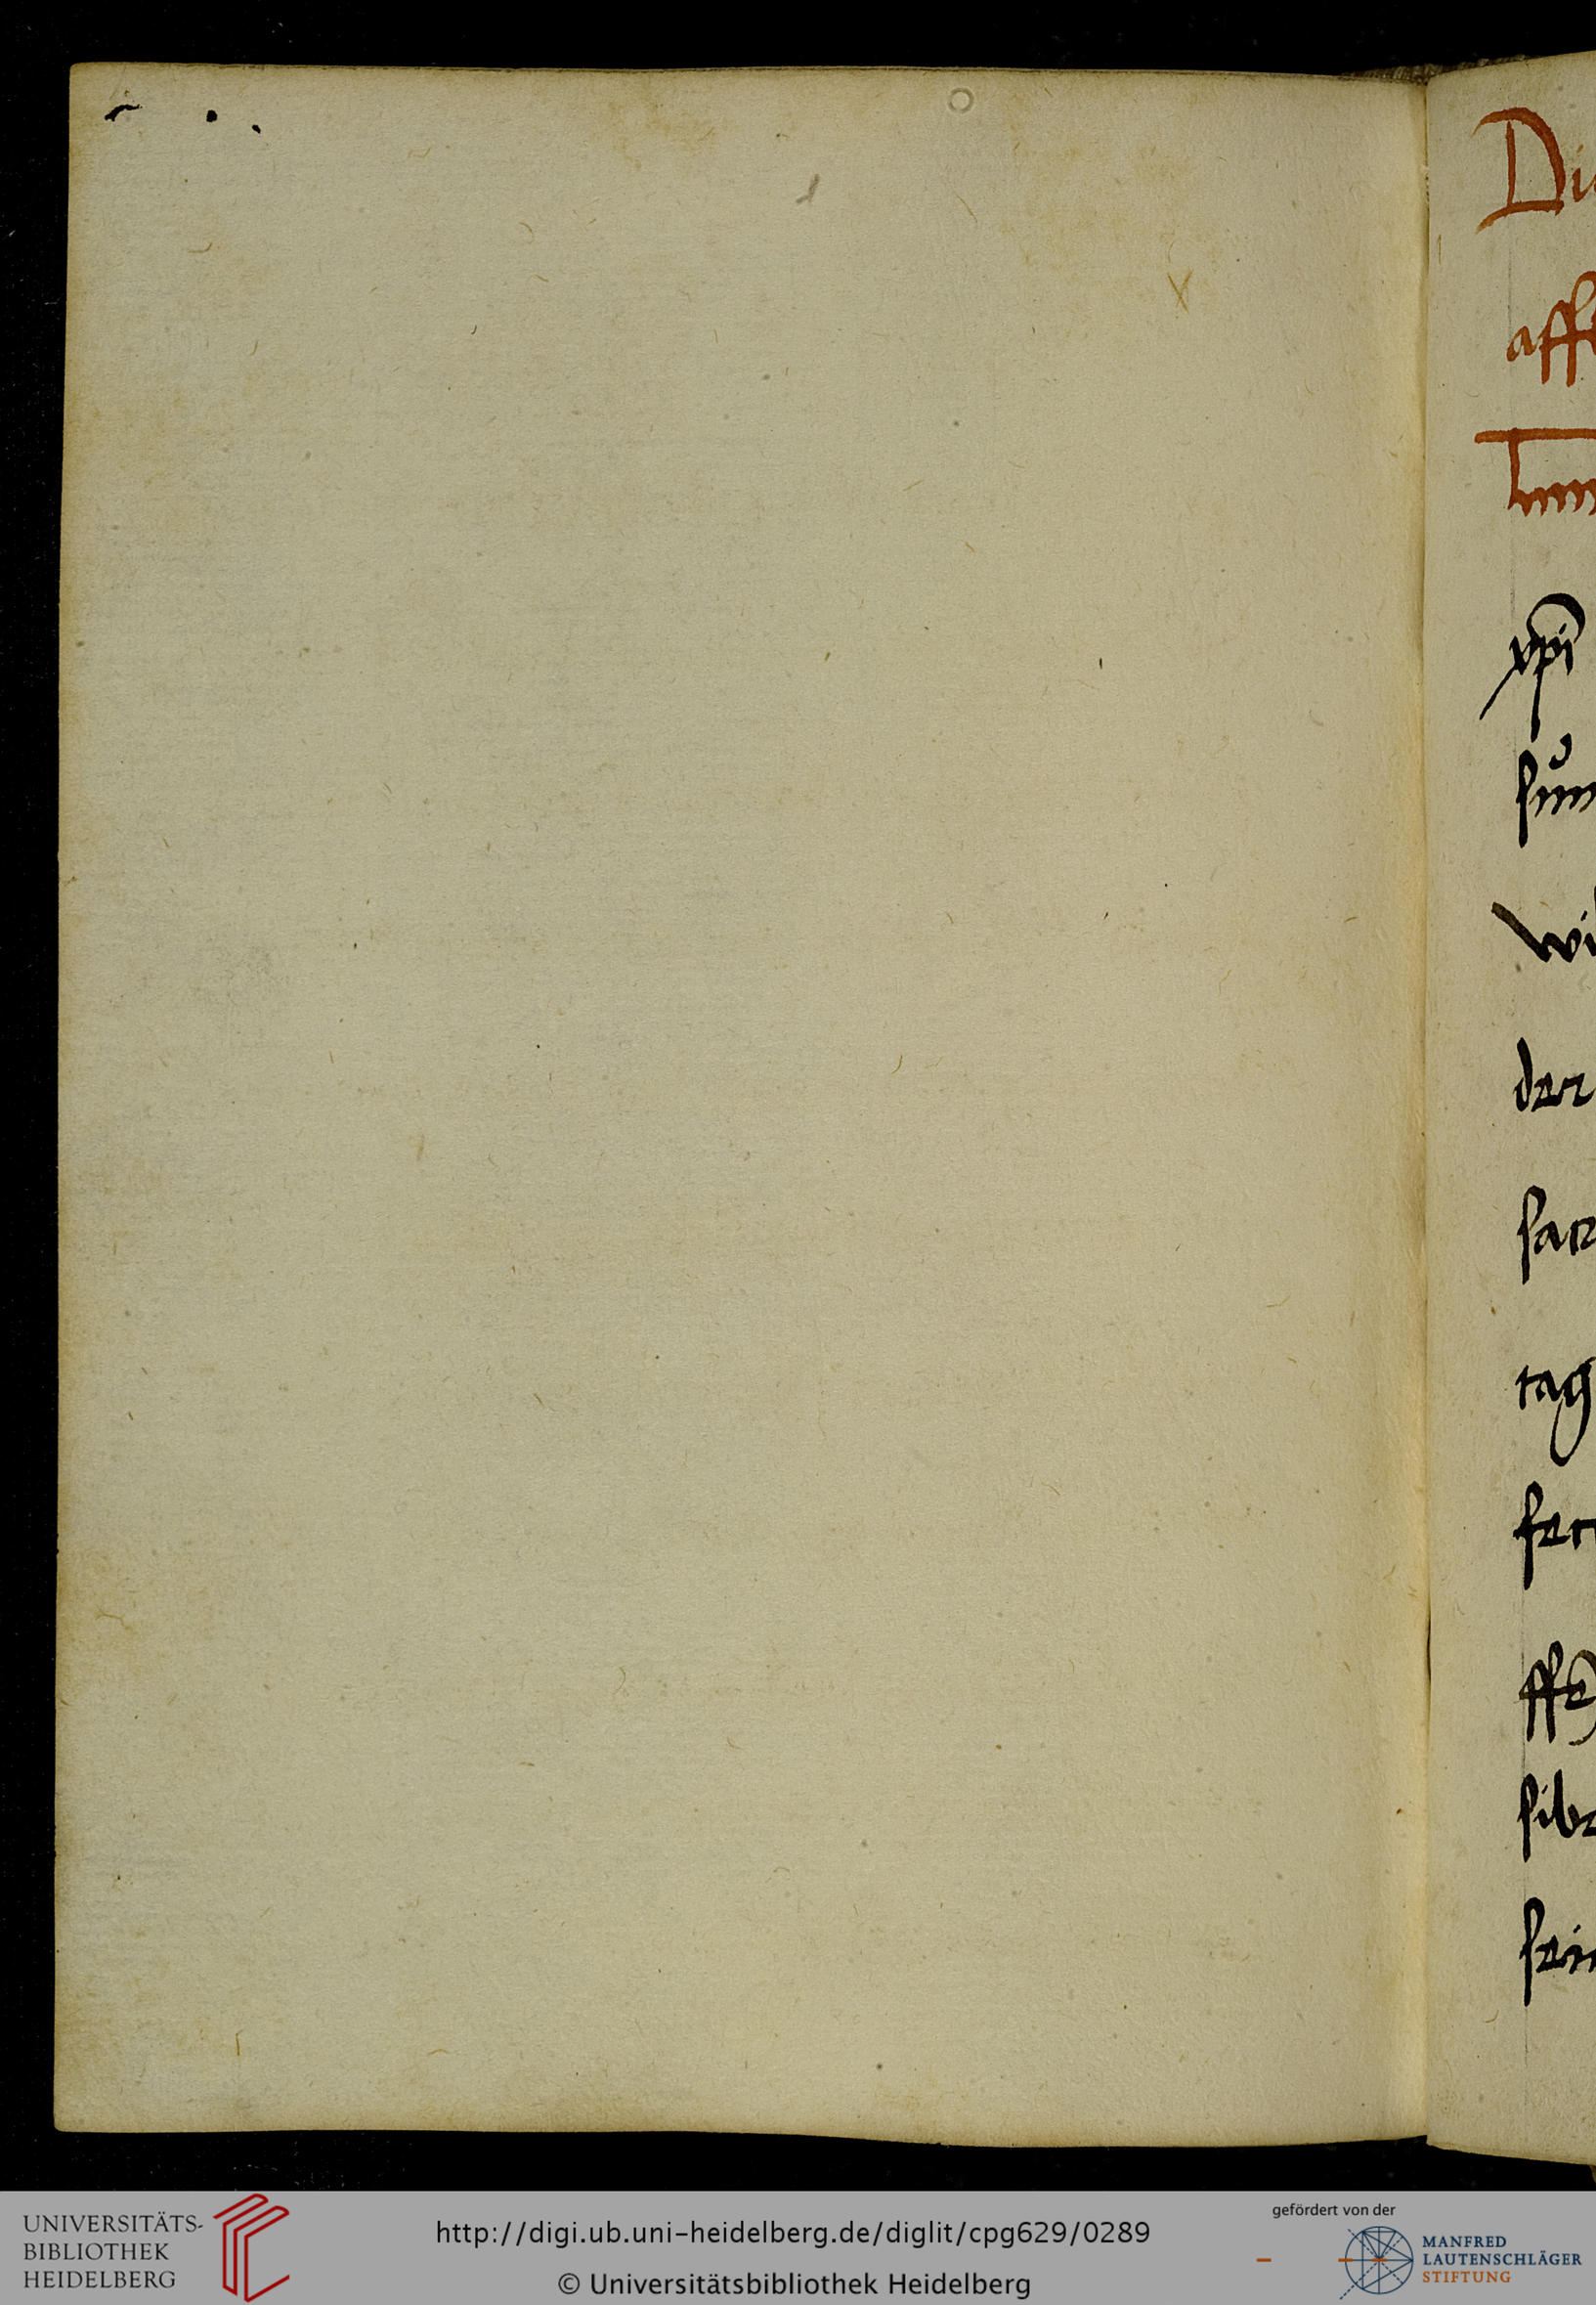 Di
aff
xpi
sun
wi
der
sat
tag
sib
sein
UNIVERSITÄTS-
BIBLIOTHEK
HEIDELBERG
http://digi.ub.uni-heidelberg.de/diglit/cpg629/0289
© Universitätsbibliothek Heidelberg
gefördert von der
MANFRED
LAUTENSCHLÄGER
STIFTUNG